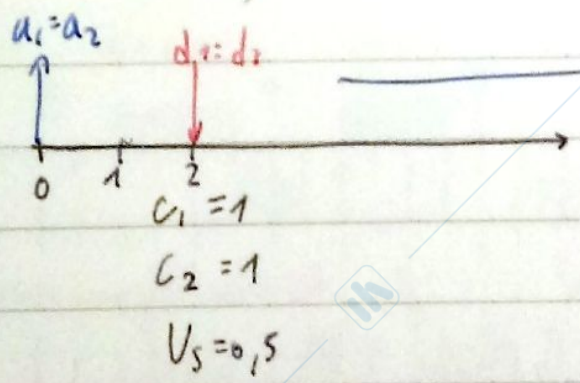 a₁=a₂
d₁=d₂
0 1 2
C₁ = 1
C₂ = 1
Uₛ=0,5